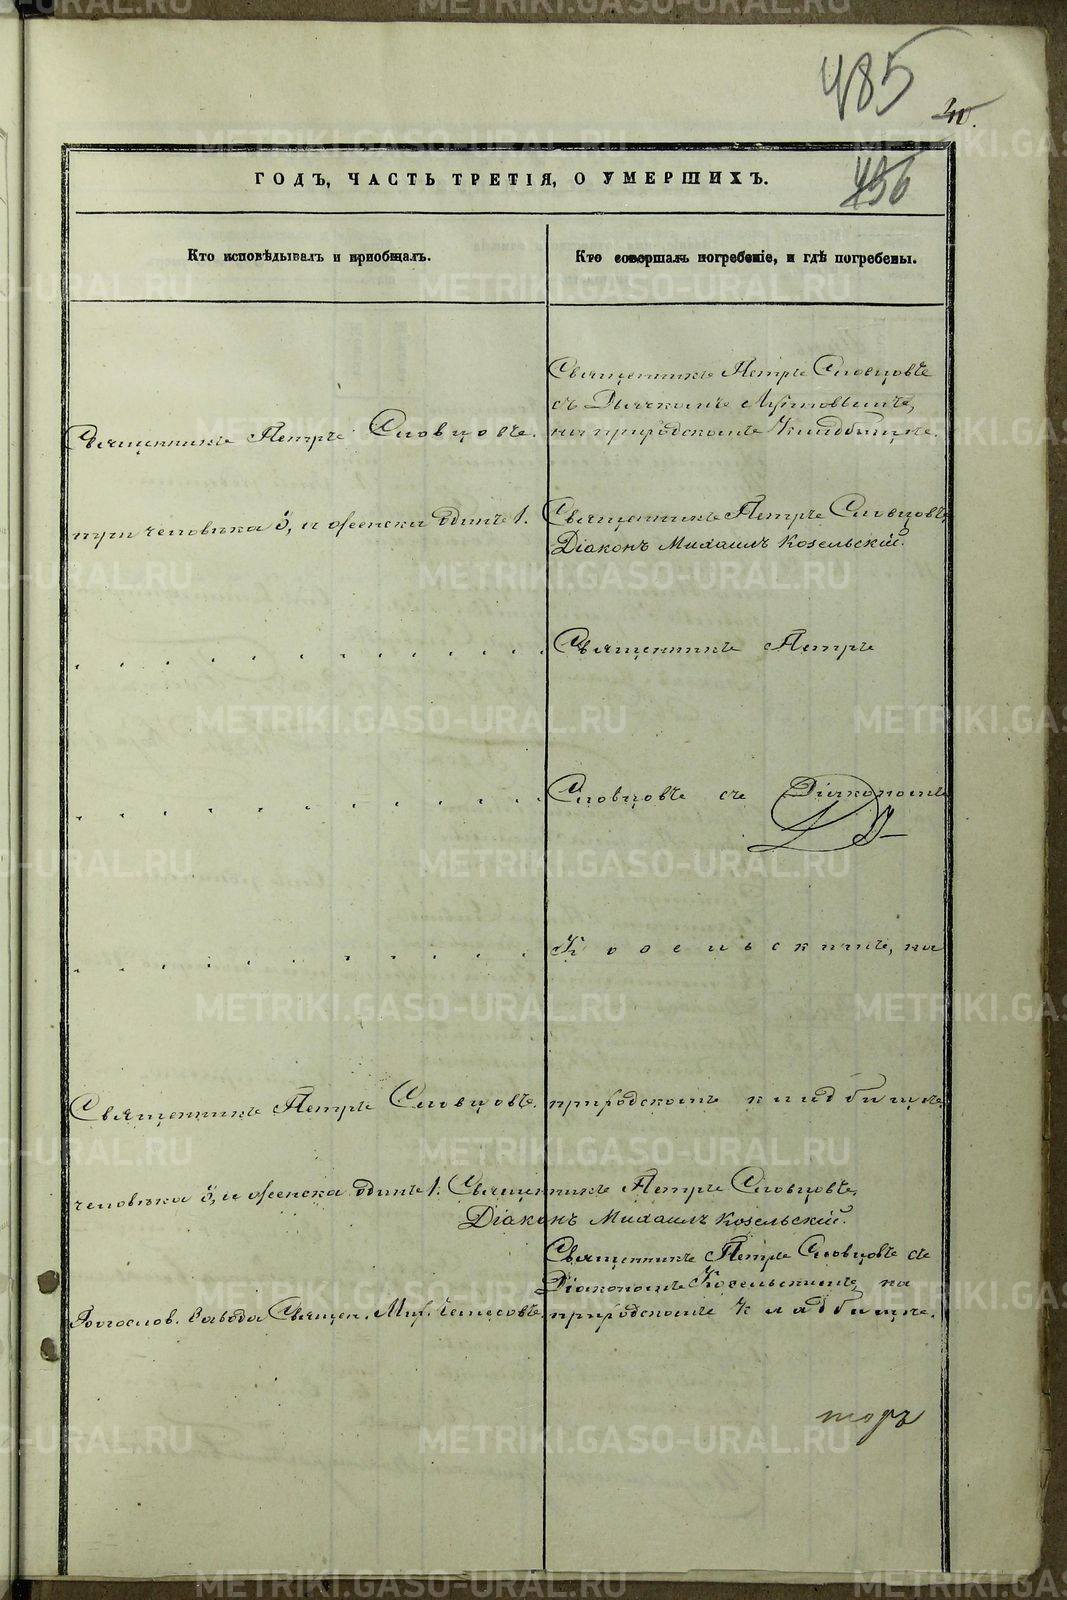 485
40.
436
ГОДЪ, ЧАСТЬ ТРЕТІЯ, О УМЕРШИХЪ.
Кто исповѣдывалъ и пріобщалъ.
Кто совершалъ погребеніе, и гдѣ погребены.
Священникъ Петръ Словцовъ.
Священникъ Петръ Словцовъ
съ Дьячкомъ
на природскомъ Кладбищѣ.
три человѣка 3, и женска одинъ 1.
Священникъ Петръ Словцовъ,
Діаконъ Михаилъ Козельскій.
Священникъ Петръ
Словцовъ съ Діакономъ
Козельскимъ, на
Священникъ Петръ Словцовъ.
природскомъ кладбищѣ.
человѣка 3, и женска одинъ 1.
Священникъ Петръ Словцовъ,
Діаконъ Михаилъ Козельскій.
Богослов. Завода Священ. Мих.
Священникъ Петръ Словцовъ съ
Діакономъ Козельскимъ, на
природскомъ Кладбищѣ.
METRIKI.GASO-URAL.RU